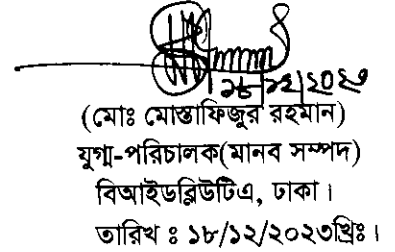 ১৮/১২/২০২৩
(মোঃ মোস্তাফিজুর রহমান)
যুগ্ম-পরিচালক(মানব সম্পদ)
বিআইডব্লিউটিএ, ঢাকা।
তারিখ ঃ ১৮/১২/২০২৩খ্রিঃ।